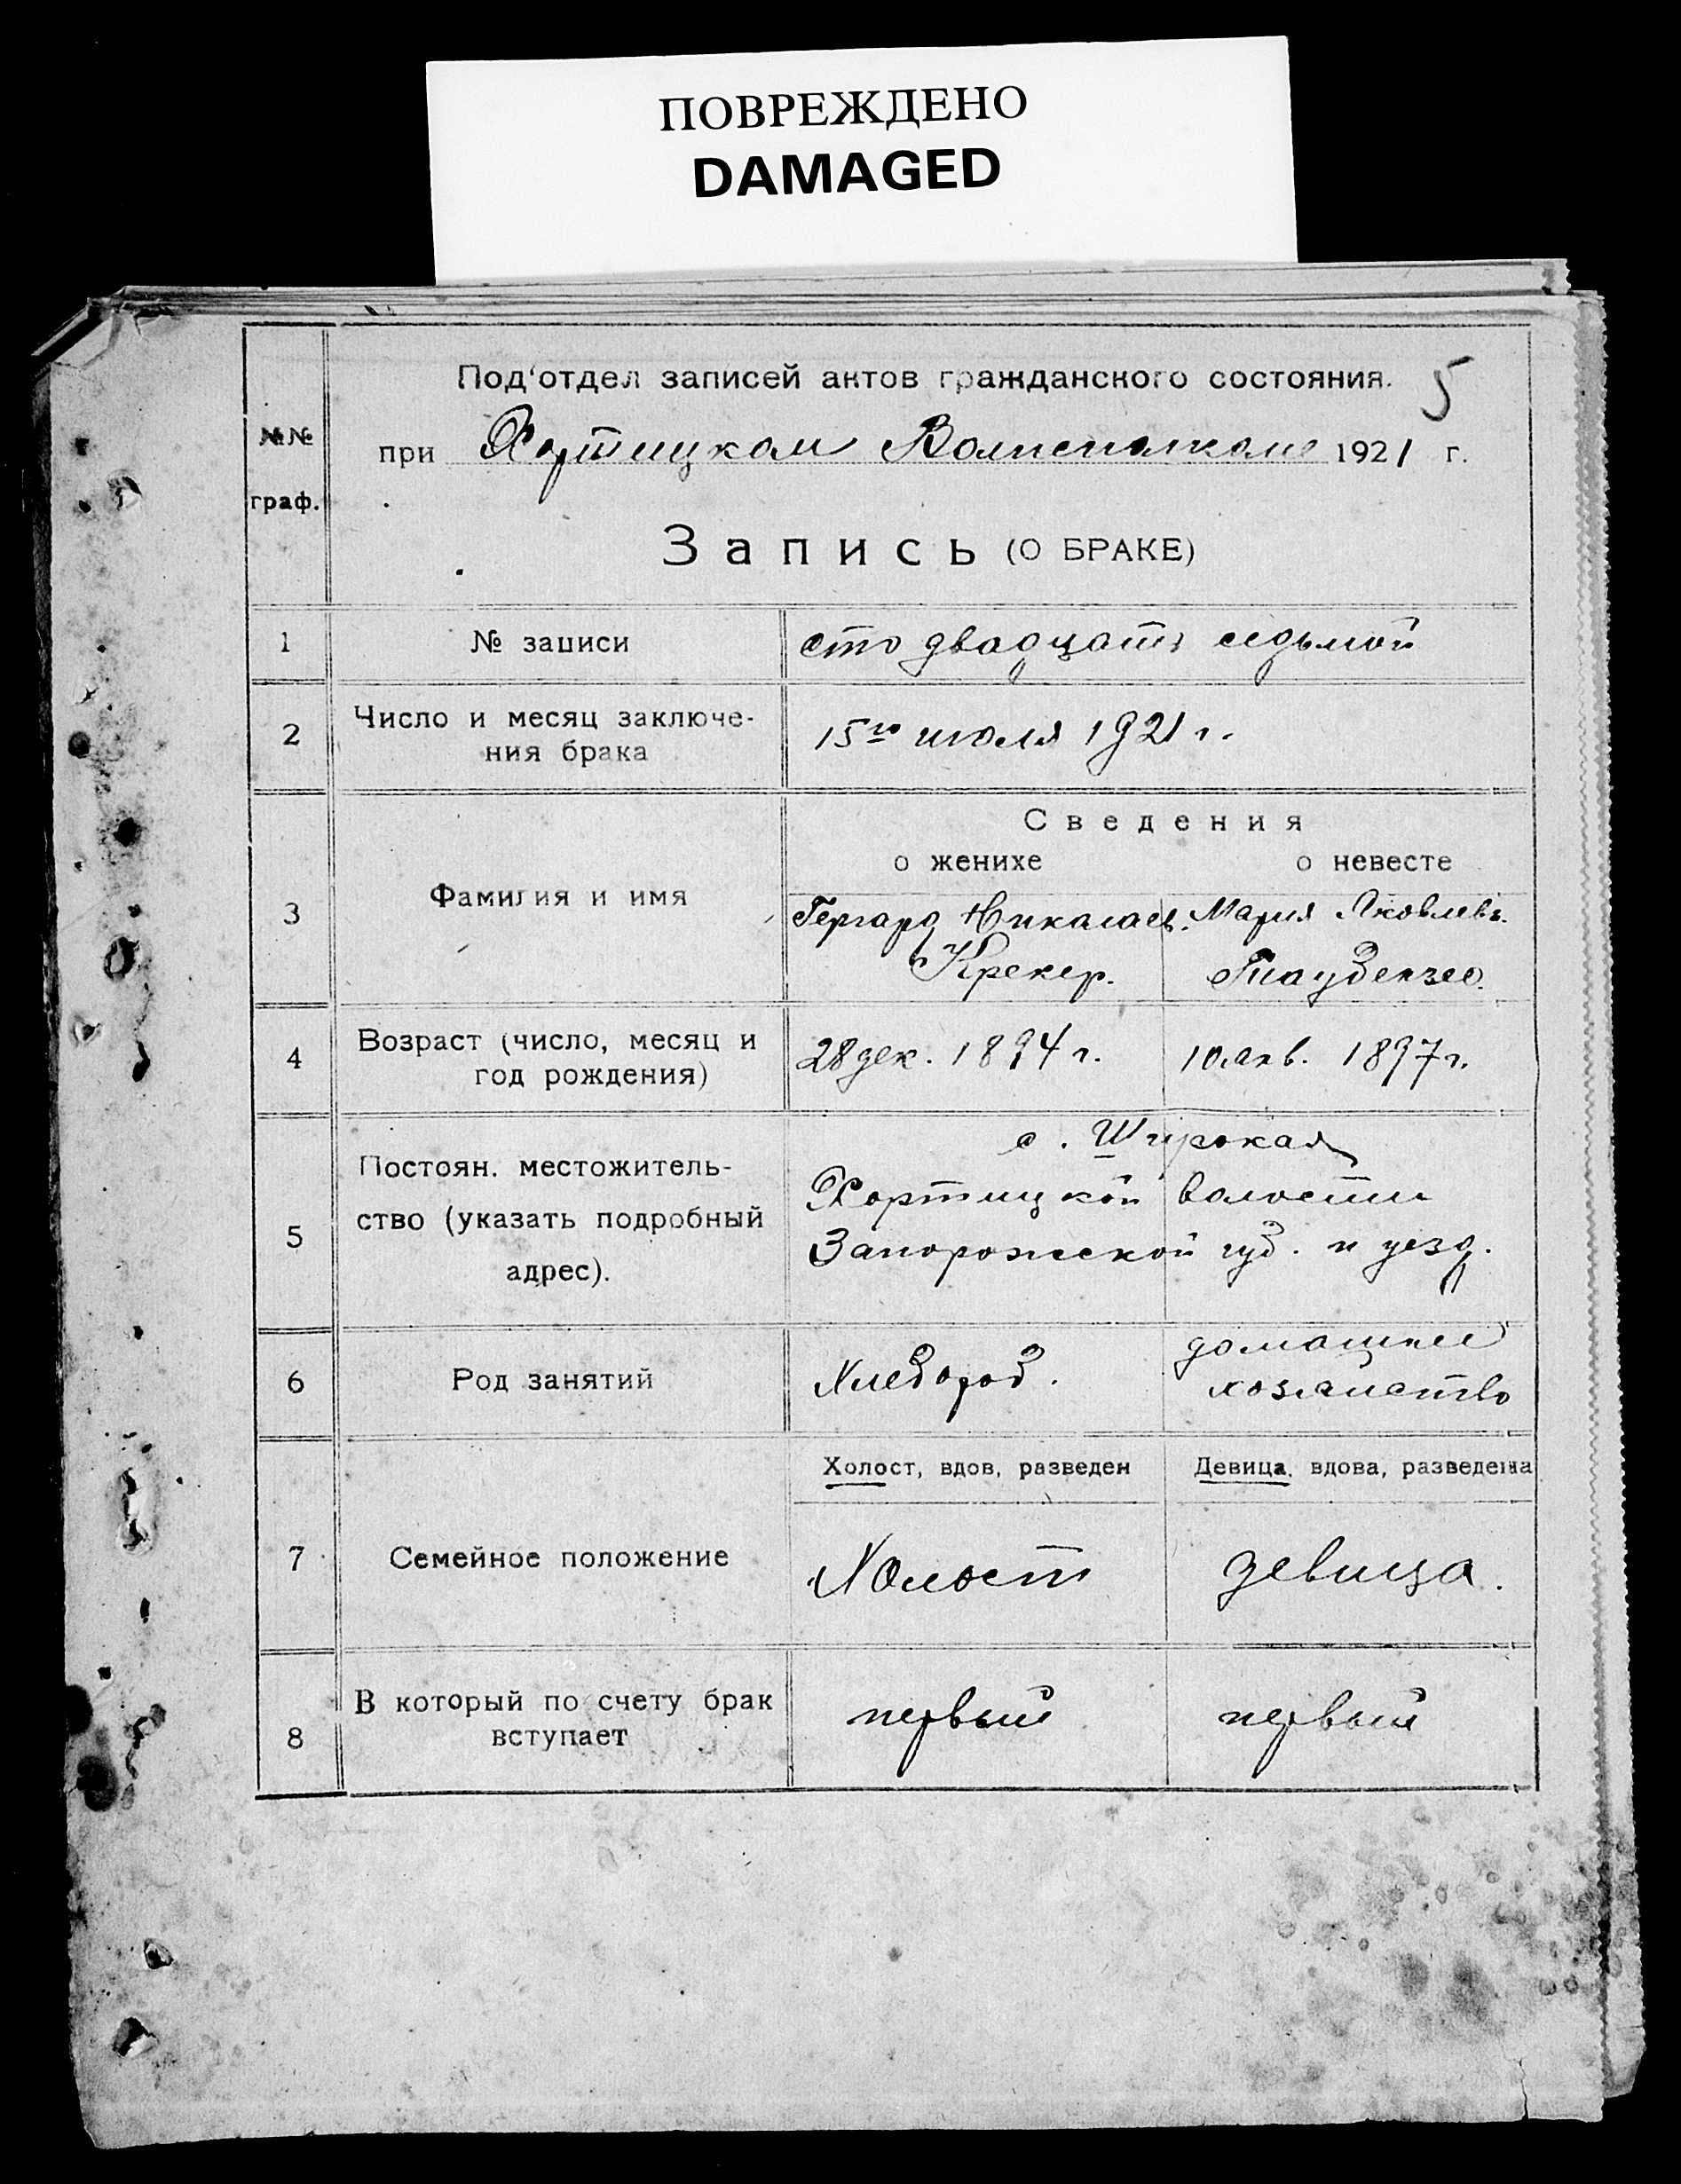 ПОВРЕЖДЕНО
DAMAGED
Под'отдел записей актов гражданского состояния. 5
№№ граф.
при Хортицком Волисполкоме 1921 г.
Запись (О БРАКЕ)
1 № записи сто двадцать седьмой
2 Число и месяц заключе-
ния брака 15го июля 1921 г.
Сведения
о женихе о невесте
3 Фамилия и имя Гергард Николаев. Мария Яковлев.
Крекер.
4 Возраст (число, месяц и
год рождения) 28 дек. 1894 г. 10 янв. 1897 г.
5 Постоян. местожитель-
ство (указать подробный
адрес).
с. Широкая
Хортицкой волости
Запорожской губ. и уезд.
6 Род занятий Хлебороб. домашнее
хозяйство
Холост, вдов, разведен Девица, вдова, разведена
7 Семейное положение Холост девица.
8 В который по счету брак
вступает первый первый